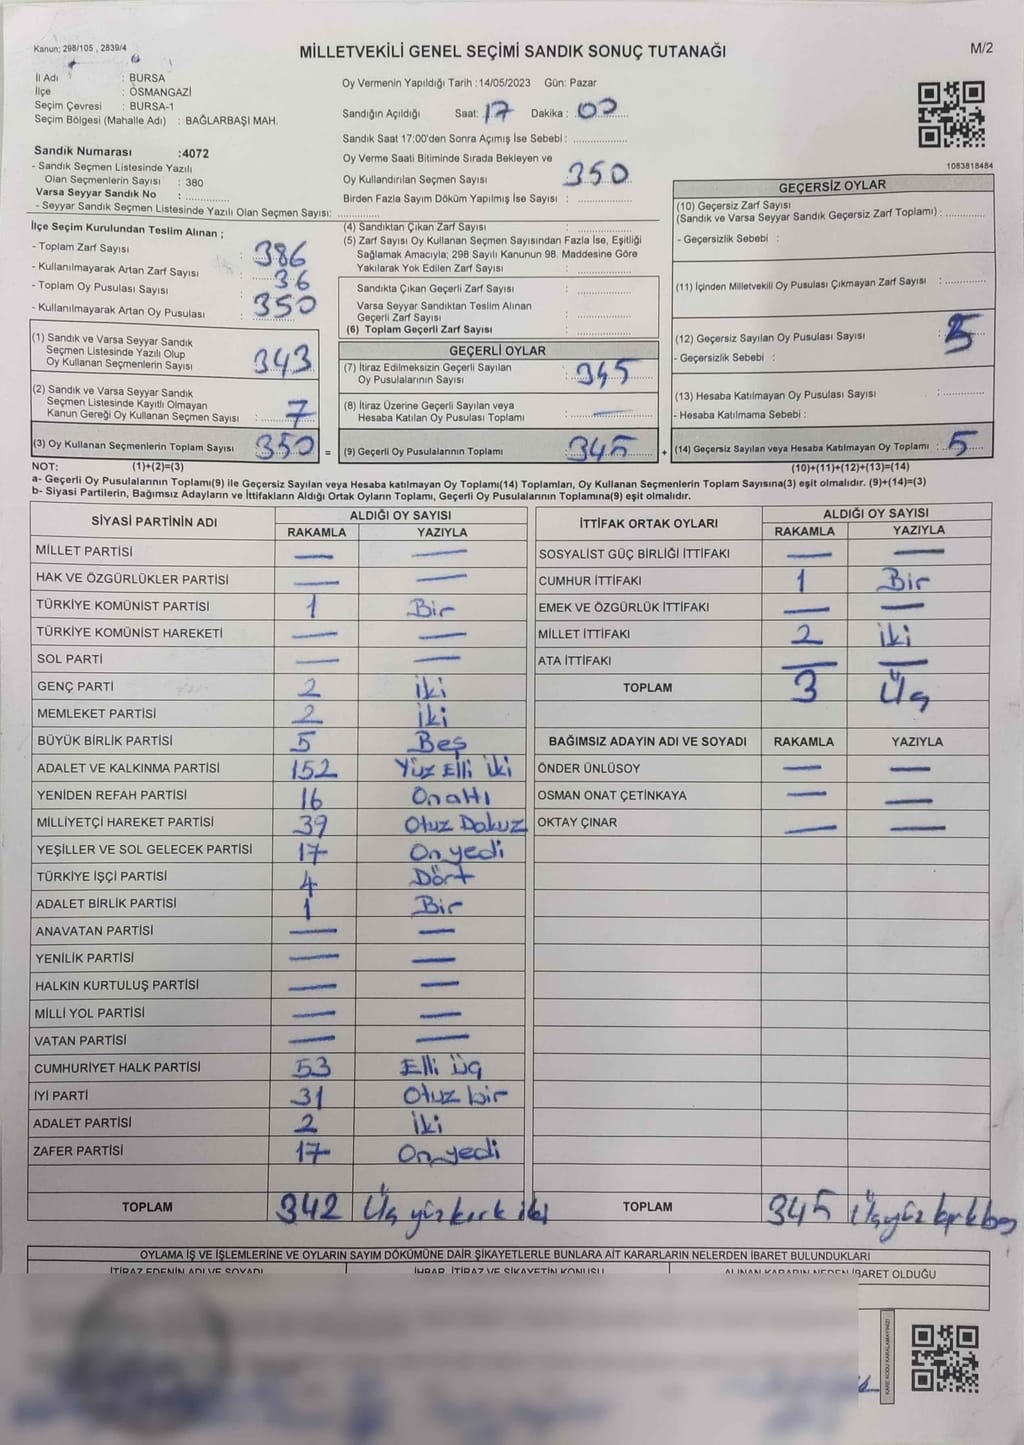 Kanun; 298/105 , 2839/4
MİLLETVEKİLİ GENEL SEÇİMİ SANDIK SONUÇ TUTANAĞI
M/2
İl Adı : BURSA
İlçe : OSMANGAZİ
Seçim Çevresi : BURSA-1
Seçim Bölgesi (Mahalle Adı) : BAĞLARBAŞI MAH.
Sandık Numarası :4072
- Sandık Seçmen Listesinde Yazılı
Olan Seçmenlerin Sayısı : 380
Varsa Seyyar Sandık No : ..............
- Seyyar Sandık Seçmen Listesinde Yazılı Olan Seçmen Sayısı: ..............
Oy Vermenin Yapıldığı Tarih :14/05/2023 Gün: Pazar
Sandığın Açıldığı Saat: 17 Dakika : 00
Sandık Saat 17:00'den Sonra Açımış İse Sebebi : ..............
Oy Verme Saati Bitiminde Sırada Bekleyen ve
Oy Kullandırılan Seçmen Sayısı : 350
Birden Fazla Sayım Döküm Yapılmış İse Sayısı : ..............
1083818484
İlçe Seçim Kurulundan Teslim Alınan ;
- Toplam Zarf Sayısı : 386
- Kullanılmayarak Artan Zarf Sayısı : 36
- Toplam Oy Pusulası Sayısı : 350
- Kullanılmayarak Artan Oy Pusulası :
(1) Sandık ve Varsa Seyyar Sandık
Seçmen Listesinde Yazılı Olup
Oy Kullanan Seçmenlerin Sayısı 343
(2) Sandık ve Varsa Seyyar Sandık
Seçmen Listesinde Kayıtlı Olmayan
Kanun Gereği Oy Kullanan Seçmen Sayısı : 7
(3) Oy Kullanan Seçmenlerin Toplam Sayısı 350 =
(4) Sandıktan Çıkan Zarf Sayısı : ..............
(5) Zarf Sayısı Oy Kullanan Seçmen Sayısından Fazla İse, Eşitliği
Sağlamak Amacıyla; 298 Sayılı Kanunun 98. Maddesine Göre
Yakılarak Yok Edilen Zarf Sayısı : ..............
Sandıkta Çıkan Geçerli Zarf Sayısı : ..............
Varsa Seyyar Sandıktan Teslim Alınan
Geçerli Zarf Sayısı : ..............
(6) Toplam Geçerli Zarf Sayısı : ..............
GEÇERLİ OYLAR
(7) İtiraz Edilmeksizin Geçerli Sayılan
Oy Pusulalarının Sayısı : 345
(8) İtiraz Üzerine Geçerli Sayılan veya
Hesaba Katılan Oy Pusulası Toplamı : —
(9) Geçerli Oy Pusulalarının Toplamı : 345 +
GEÇERSİZ OYLAR
(10) Geçersiz Zarf Sayısı
(Sandık ve Varsa Seyyar Sandık Geçersiz Zarf Toplamı) : ..............
- Geçersizlik Sebebi :
(11) İçinden Milletvekili Oy Pusulası Çıkmayan Zarf Sayısı : ..............
(12) Geçersiz Sayılan Oy Pusulası Sayısı : 5
- Geçersizlik Sebebi :
(13) Hesaba Katılmayan Oy Pusulası Sayısı : ..............
- Hesaba Katılmama Sebebi :
(14) Geçersiz Sayılan veya Hesaba Katılmayan Oy Toplamı : 5
NOT: (1)+(2)=(3) (10)+(11)+(12)+(13)=(14)
a- Geçerli Oy Pusulalarının Toplamı(9) ile Geçersiz Sayılan veya Hesaba katılmayan Oy Toplamı(14) Toplamları, Oy Kullanan Seçmenlerin Toplam Sayısına(3) eşit olmalıdır. (9)+(14)=(3)
b- Siyasi Partilerin, Bağımsız Adayların ve İttifakların Aldığı Ortak Oyların Toplamı, Geçerli Oy Pusulalarının Toplamına(9) eşit olmalıdır.
SİYASİ PARTİNİN ADI ALDIĞI OY SAYISI
RAKAMLA YAZIYLA
MİLLET PARTİSİ — —
HAK VE ÖZGÜRLÜKLER PARTİSİ — —
TÜRKİYE KOMÜNİST PARTİSİ 1 Bir
TÜRKİYE KOMÜNİST HAREKETİ — —
SOL PARTİ — —
GENÇ PARTİ 2 iki
MEMLEKET PARTİSİ 2 iki
BÜYÜK BİRLİK PARTİSİ 5 Beş
ADALET VE KALKINMA PARTİSİ 152 Yüz Elli iki
YENİDEN REFAH PARTİSİ 16 Onaltı
MİLLİYETÇİ HAREKET PARTİSİ 39 Otuz Dokuz
YEŞİLLER VE SOL GELECEK PARTİSİ 17 On yedi
TÜRKİYE İŞÇİ PARTİSİ 4 Dört
ADALET BİRLİK PARTİSİ 1 Bir
ANAVATAN PARTİSİ — —
YENİLİK PARTİSİ — —
HALKIN KURTULUŞ PARTİSİ — —
MİLLİ YOL PARTİSİ — —
VATAN PARTİSİ — —
CUMHURİYET HALK PARTİSİ 53 Elli üç
İYİ PARTİ 31 Otuz bir
ADALET PARTİSİ 2 iki
ZAFER PARTİSİ 17 On yedi
TOPLAM 342 Üç yüz kırk iki
İTTİFAK ORTAK OYLARI ALDIĞI OY SAYISI
RAKAMLA YAZIYLA
SOSYALİST GÜÇ BİRLİĞİ İTTİFAKI — —
CUMHUR İTTİFAKI 1 Bir
EMEK VE ÖZGÜRLÜK İTTİFAKI — —
MİLLET İTTİFAKI 2 iki
ATA İTTİFAKI — —
TOPLAM 3 Üç
BAĞIMSIZ ADAYIN ADI VE SOYADI RAKAMLA YAZIYLA
ÖNDER ÜNLÜSOY — —
OSMAN ONAT ÇETİNKAYA — —
OKTAY ÇINAR — —
TOPLAM 345 Üç yüz kırk beş
OYLAMA İŞ VE İŞLEMLERİNE VE OYLARIN SAYIM DÖKÜMÜNE DAİR ŞİKAYETLERLE BUNLARA AİT KARARLARIN NELERDEN İBARET BULUNDUKLARI
İTİRAZ EDENİN ADI VE SOYADI İHBAR, İTİRAZ VE ŞİKAYETİN KONUSU ALINAN KARARIN NEDEN İBARET OLDUĞU
KARE KODU KARALAMAYINIZ!